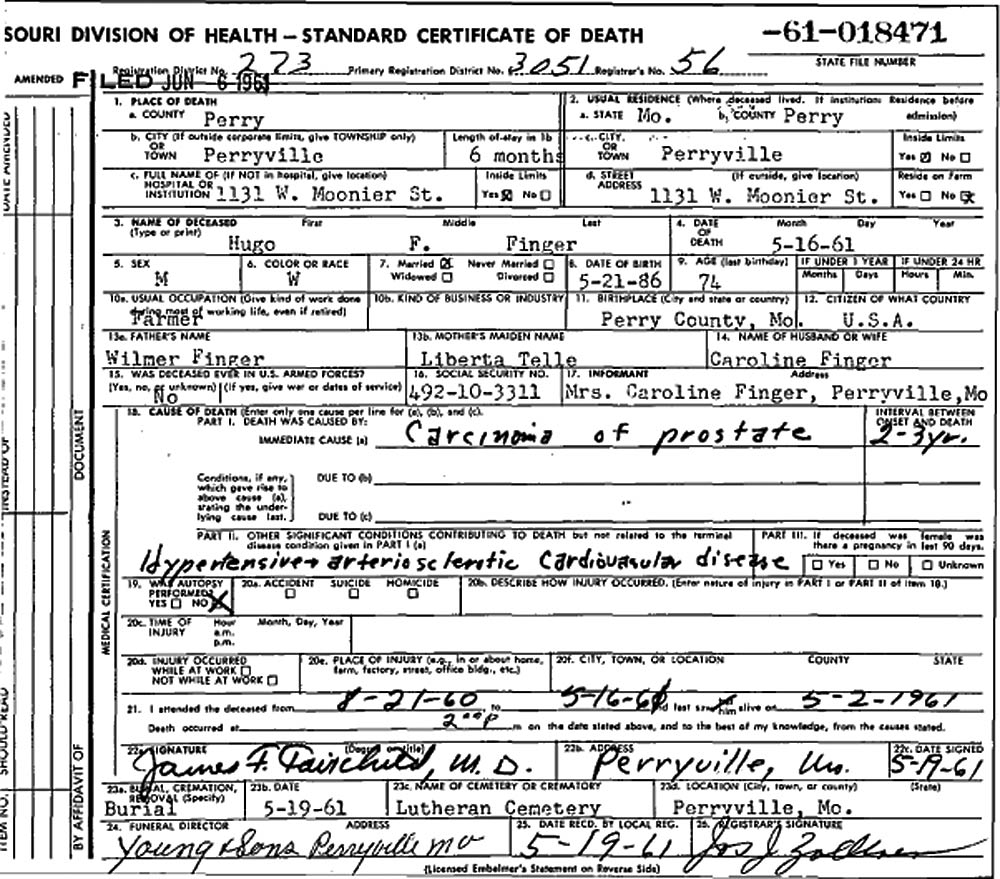 SOURI DIVISION OF HEALTH — STANDARD CERTIFICATE OF DEATH
-61-018471
STATE FILE NUMBER
Registration District No. 273 Primary Registration District No. 3051 Registrar's No. 56
AMENDED
FILED JUN 6 1961
1. PLACE OF DEATH
a. COUNTY Perry
2. USUAL RESIDENCE (Where deceased lived. If institution: Residence before admission)
a. STATE Mo. b. COUNTY Perry
b. CITY (If outside corporate limits, give TOWNSHIP only)
OR TOWN Perryville
Length of stay in 1b
6 months
c. CITY OR TOWN Perryville
Inside Limits
Yes ☒ No ☐
c. FULL NAME OF (If NOT in hospital, give location)
HOSPITAL OR INSTITUTION 1131 W. Moonier St.
Inside Limits
Yes ☒ No ☐
d. STREET ADDRESS (If outside, give location)
1131 W. Moonier St.
Reside on Farm
Yes ☐ No ☒
3. NAME OF DECEASED (Type or print)
First Middle Last
Hugo F. Finger
4. DATE OF DEATH
Month Day Year
5-16-61
5. SEX
M
6. COLOR OR RACE
W
7. Married ☒ Never Married ☐
Widowed ☐ Divorced ☐
8. DATE OF BIRTH
5-21-86
9. AGE (last birthday)
74
IF UNDER 1 YEAR
Months Days
IF UNDER 24 HR
Hours Min.
10a. USUAL OCCUPATION (Give kind of work done during most of working life, even if retired)
Farmer
10b. KIND OF BUSINESS OR INDUSTRY
11. BIRTHPLACE (City and state or country)
Perry County, Mo.
12. CITIZEN OF WHAT COUNTRY
U.S.A.
13a. FATHER'S NAME
Wilmer Finger
13b. MOTHER'S MAIDEN NAME
Liberta Telle
14. NAME OF HUSBAND OR WIFE
Caroline Finger
15. WAS DECEASED EVER IN U.S. ARMED FORCES?
(Yes, no, or unknown) (If yes, give war or dates of service)
No
16. SOCIAL SECURITY NO.
492-10-3311
17. INFORMANT Address
Mrs. Caroline Finger, Perryville, Mo
18. CAUSE OF DEATH (Enter only one cause per line for (a), (b), and (c).
PART I. DEATH WAS CAUSED BY:
IMMEDIATE CAUSE (a) Carcinoma of prostate
INTERVAL BETWEEN ONSET AND DEATH
2-3yr.
Conditions, if any, which gave rise to above cause (a), stating the underlying cause last.
DUE TO (b)
DUE TO (c)
PART II. OTHER SIGNIFICANT CONDITIONS CONTRIBUTING TO DEATH but not related to the terminal disease condition given in PART I (a)
Hypertensive + arteriosclerotic Cardiovascular disease
PART III. If deceased was female was there a pregnancy in last 90 days.
☐ Yes ☐ No ☐ Unknown
19. WAS AUTOPSY PERFORMED?
YES ☐ NO ☒
20a. ACCIDENT SUICIDE HOMICIDE
☐ ☐ ☐
20b. DESCRIBE HOW INJURY OCCURRED. (Enter nature of injury in PART I or PART II of item 18.)
20c. TIME OF INJURY
Hour Month, Day, Year
a.m.
p.m.
20d. INJURY OCCURRED
WHILE AT WORK ☐
NOT WHILE AT WORK ☐
20e. PLACE OF INJURY (e.g., in or about home, farm, factory, street, office bldg., etc.)
20f. CITY, TOWN, OR LOCATION COUNTY STATE
21. I attended the deceased from 8-21-60 to 5-16-61 and last saw him alive on 5-2-1961
Death occurred at 2:00 P m on the date stated above, and to the best of my knowledge, from the causes stated.
22a. SIGNATURE (Degree or title)
James F. Fairchild, M.D.
22b. ADDRESS
Perryville, Mo.
22c. DATE SIGNED
5-19-61
23a. BURIAL, CREMATION, REMOVAL (Specify)
Burial
23b. DATE
5-19-61
23c. NAME OF CEMETERY OR CREMATORY
Lutheran Cemetery
23d. LOCATION (City, town, or county) (State)
Perryville, Mo.
24. FUNERAL DIRECTOR ADDRESS
Young & Sons Perryville Mo
25. DATE RECD. BY LOCAL REG.
5-19-61
26. REGISTRAR'S SIGNATURE
Jos J. Zoellner
(Licensed Embalmer's Statement on Reverse Side)
DATE AMENDED
INSTEAD OF
DOCUMENT
MEDICAL CERTIFICATION
ITEM NO. SHOULD READ
BY AFFIDAVIT OF